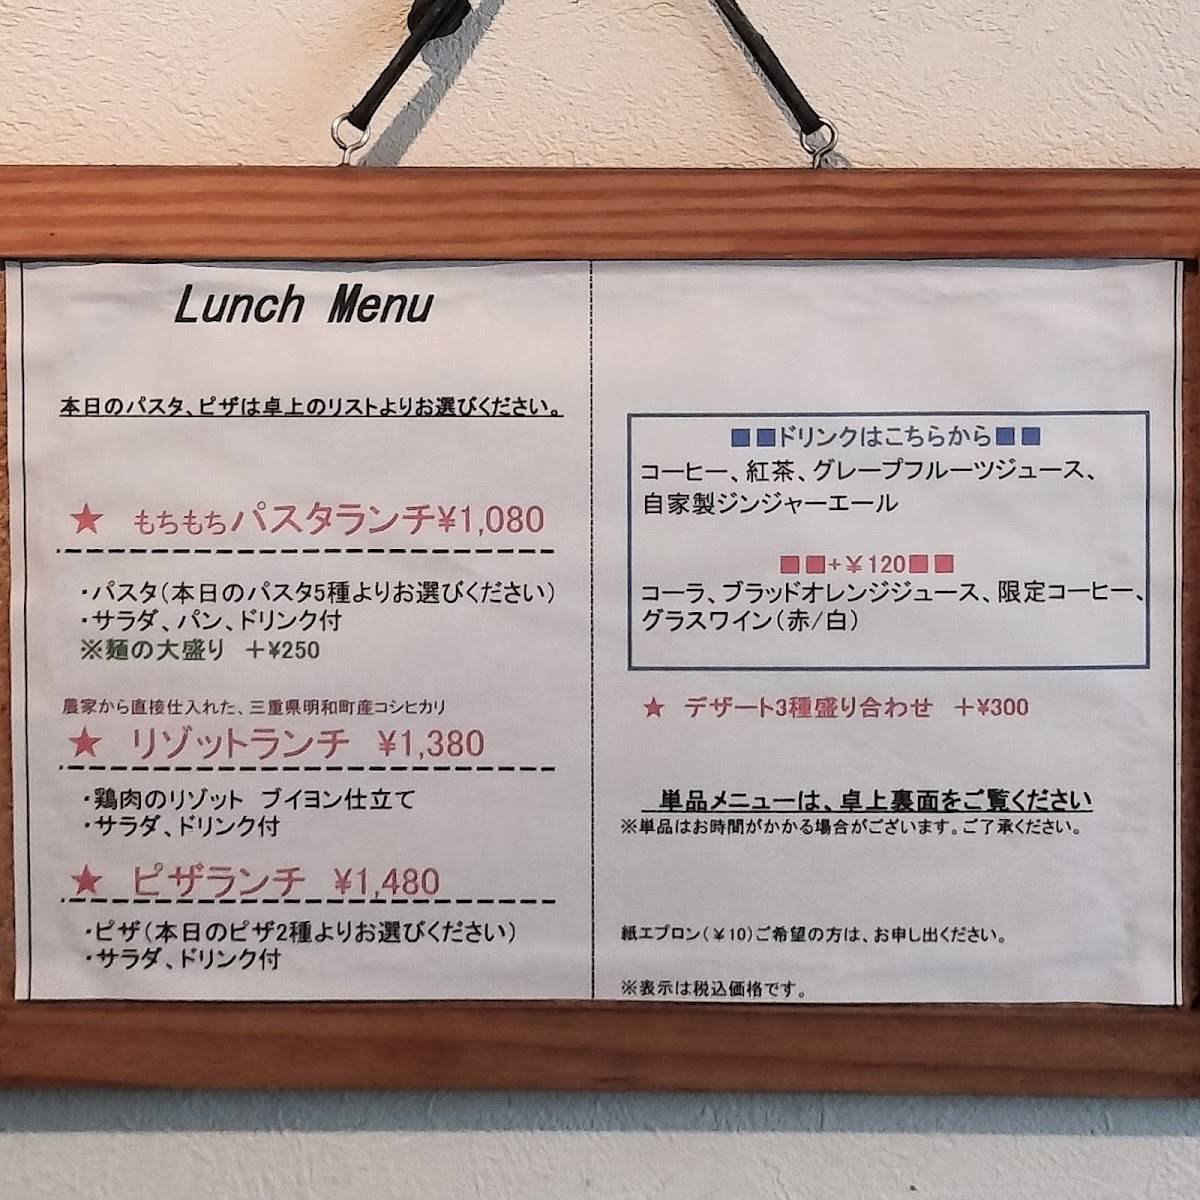 Lunch Menu
本日のパスタ、ピザは卓上のリストよりお選びください。
★ もちもちパスタランチ¥1,080
・パスタ(本日のパスタ5種よりお選びください)
・サラダ、パン、ドリンク付
※麺の大盛り ＋¥250
農家から直接仕入れた、三重県明和町産コシヒカリ
★ リゾットランチ ¥1,380
・鶏肉のリゾット ブイヨン仕立て
・サラダ、ドリンク付
★ ピザランチ ¥1,480
・ピザ(本日のピザ2種よりお選びください)
・サラダ、ドリンク付
■■ドリンクはこちらから■■
コーヒー、紅茶、グレープフルーツジュース、
自家製ジンジャーエール
■■+￥120■■
コーラ、ブラッドオレンジジュース、限定コーヒー、
グラスワイン(赤/白)
★ デザート3種盛り合わせ ＋¥300
単品メニューは、卓上裏面をご覧ください
※単品はお時間がかかる場合がございます。ご了承ください。
紙エプロン(￥10)ご希望の方は、お申し出ください。
※表示は税込価格です。